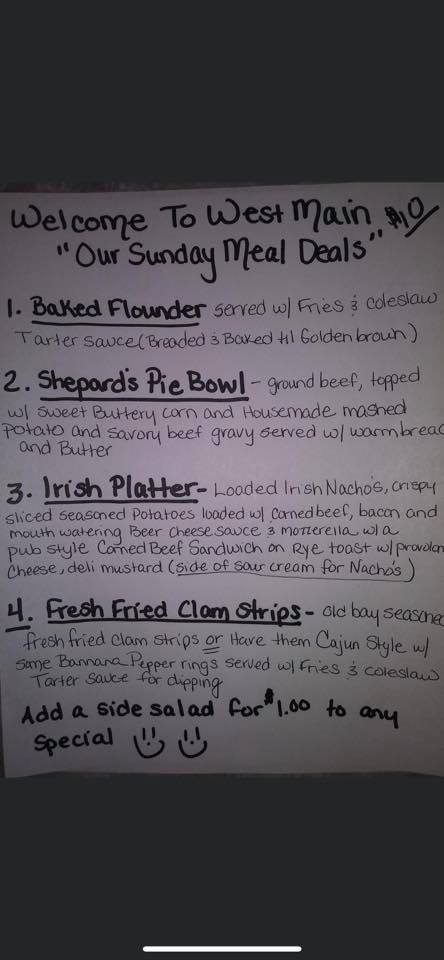 Welcome To West Main $10
"Our Sunday Meal Deals"
1. Baked Flounder served w/ Fries & coleslaw
Tarter sauce (Breaded & Baked til Golden brown)
2. Shepard's Pie Bowl - ground beef, topped
w/ sweet Buttery corn and Housemade mashed
potato and savory beef gravy served w/ warm bread
and Butter
3. Irish Platter - Loaded Irish Nacho's, crispy
sliced seasoned Potatoes loaded w/ corned beef, bacon and
mouth watering Beer cheese sauce & mozzerella w/ a
pub style Corned Beef Sandwich on Rye toast w/ provolon
cheese, deli mustard (side of sour cream for Nacho's)
4. Fresh Fried Clam Strips - old bay seasoned
fresh fried clam strips or Have them Cajun Style w/
some Bannana Pepper rings served w/ Fries & coleslaw
Tarter sauce for dipping
Add a side salad for $1.00 to any
special